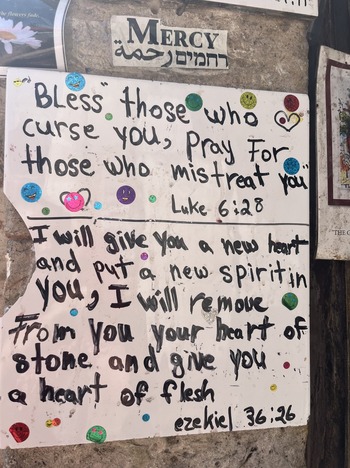 the flowers fade,
MERCY
רחמים رحمة
"Bless" those who
curse you, Pray For
those who mistreat you"
Luke 6:28
I will give you a new heart
and put a new spirit in
you, I will remove
From you your heart of
stone and give you
a heart of flesh
ezekiel 36:26